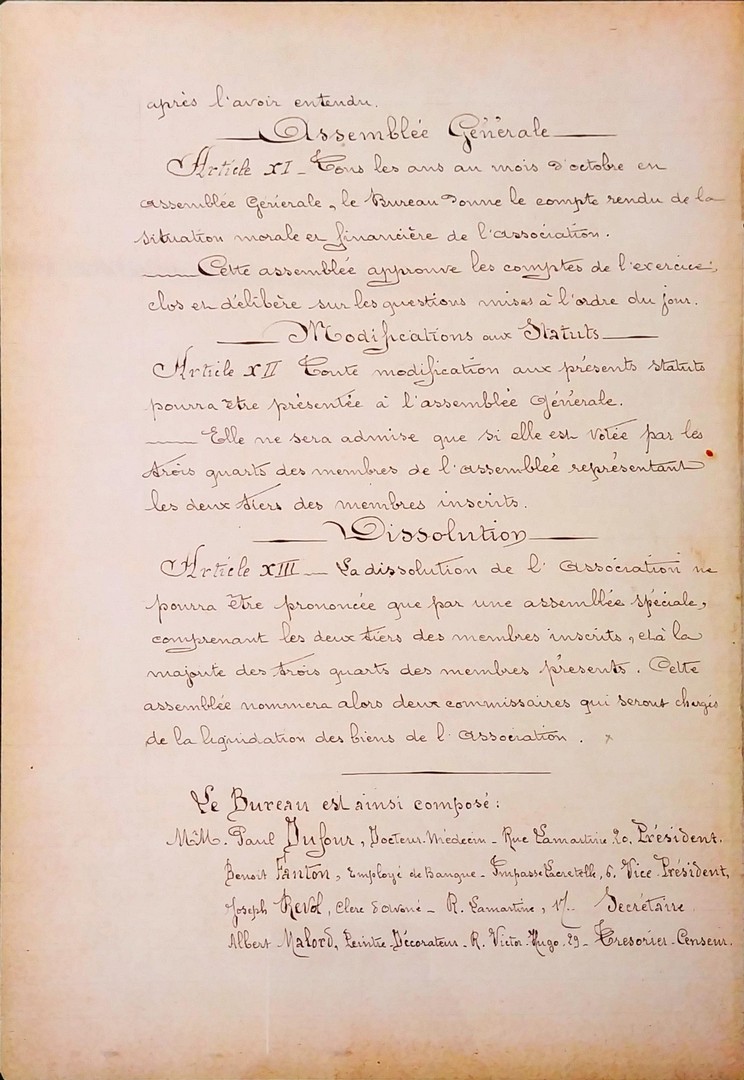 après l'avoir entendu.
Assemblée Générale
Article XI - Tous les ans au mois d'octobre en
assemblée Générale, le Bureau donne le compte rendu de la
situation morale et financière de l'association.
Cette assemblée approuve les comptes de l'exercice,
clos et délibère sur les questions mises à l'ordre du jour.
Modifications aux Statuts
Article XII Toute modification aux présents statuts
pourra être présentée à l'assemblée Générale.
Elle ne sera admise que si elle est votée par les
trois quarts des membres de l'assemblée représentant
les deux tiers des membres inscrits.
Dissolution
Article XIII - La dissolution de l'association ne
pourra être prononcée que par une assemblée spéciale,
comprenant les deux tiers des membres inscrits, et à la
majorité des trois quarts des membres présents. Cette
assemblée nommera alors deux commissaires qui seront chargés
de la liquidation des biens de l'association.
Le Bureau est ainsi composé :
M.M. Paul Dufour, Docteur-Médecin - Rue Lamartine 20, Président.
Benoit Fanton, Employé de Banque - Impasse Lacretelle, 6. Vice Président,
Joseph Revol, Clerc d'avoué - R. Lamartine, 17. Secrétaire
Albert Malord, Peintre-Décorateur - R. Victor-Hugo. 29 - Trésorier-Censeur.